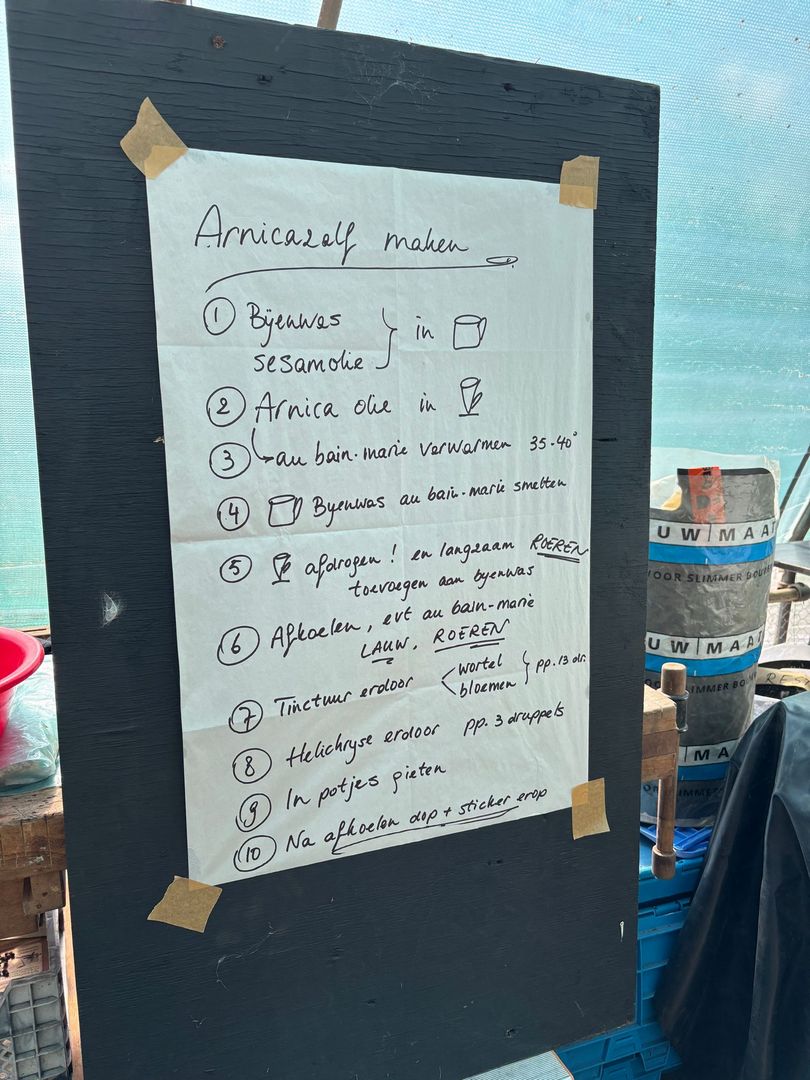 Arnicazalf maken
1 Bijenwas
sesamolie } in
2 Arnica olie in
3 au bain-marie verwarmen 35-40°
4 Byenwas au bain-marie smelten
5 afdrogen! en langzaam ROEREN
toevoegen aan byenwas
6 Afkoelen, evt au bain-marie
LAUW. ROEREN
7 Tinctuur erdoor < wortel
bloemen } pp. 13 dr.
8 Helichryse erdoor pp. 3 druppels
9 In potjes gieten
10 Na afkoelen dop + sticker erop
UW|MAA
OOR SLIMMER BOUWE
UW|MAA
IMMER BOU
MA